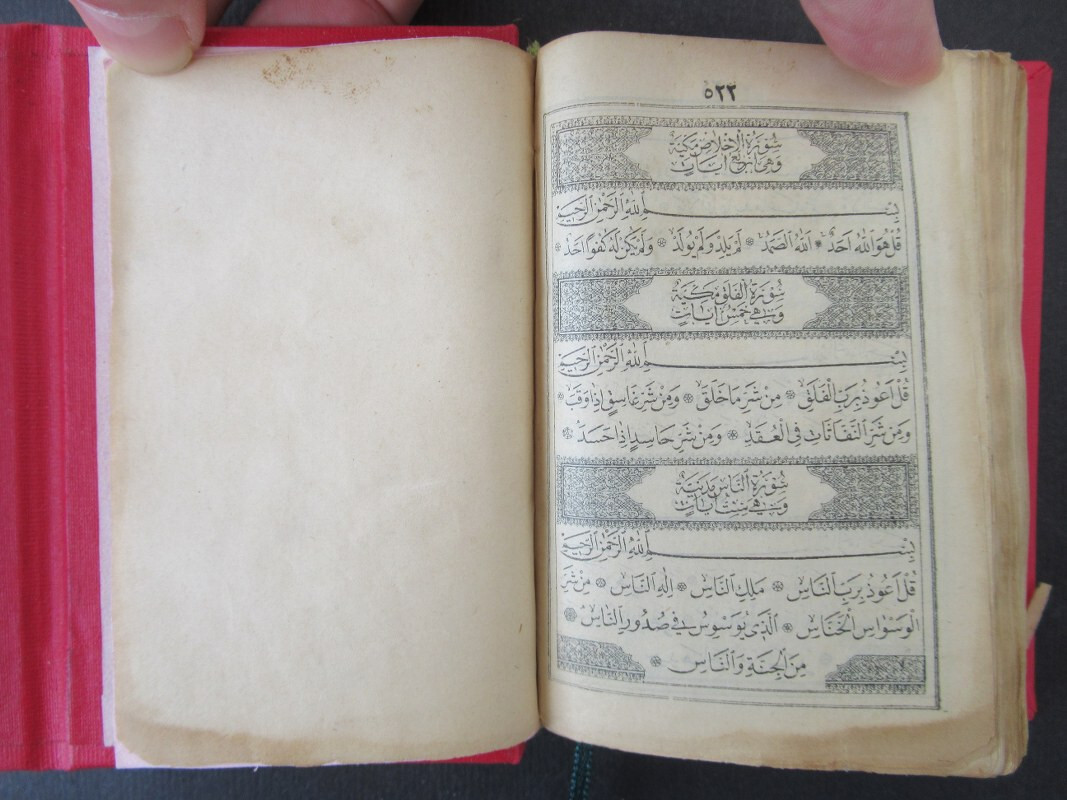 ٥٢٢
سُورَةُ الْاِخْلَاصِ مَكِّيَّةٌ
وَهِيَ اَرْبَعُ اٰيَاتٍ
بِسْمِ اللّٰهِ الرَّحْمٰنِ الرَّحِيمِ
قُلْ هُوَ اللّٰهُ اَحَدٌ ۞ اَللّٰهُ الصَّمَدُ ۞ لَمْ يَلِدْ وَلَمْ يُولَدْ ۞ وَلَمْ يَكُنْ لَهُ كُفُوًا اَحَدٌ ۞
سُورَةُ الْفَلَقِ مَكِّيَّةٌ
وَهِيَ خَمْسُ اٰيَاتٍ
بِسْمِ اللّٰهِ الرَّحْمٰنِ الرَّحِيمِ
قُلْ اَعُوذُ بِرَبِّ الْفَلَقِ ۞ مِنْ شَرِّ مَا خَلَقَ ۞ وَمِنْ شَرِّ غَاسِقٍ اِذَا وَقَبَ ۞
وَمِنْ شَرِّ النَّفَّاثَاتِ فِي الْعُقَدِ ۞ وَمِنْ شَرِّ حَاسِدٍ اِذَا حَسَدَ ۞
سُورَةُ النَّاسِ مَدَنِيَّةٌ
وَهِيَ سِتُّ اٰيَاتٍ
بِسْمِ اللّٰهِ الرَّحْمٰنِ الرَّحِيمِ
قُلْ اَعُوذُ بِرَبِّ النَّاسِ ۞ مَلِكِ النَّاسِ ۞ اِلٰهِ النَّاسِ ۞ مِنْ شَرِّ
الْوَسْوَاسِ الْخَنَّاسِ ۞ اَلَّذِي يُوَسْوِسُ فِي صُدُورِ النَّاسِ ۞
مِنَ الْجِنَّةِ وَالنَّاسِ ۞